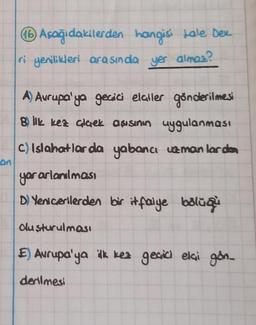 16 Aşağıdakilerden hangisi Lale Dev
ri yenilikleri arasında yer almaz?
A) Avrupa'ya geçici elçiler gönderilmesi
B) İlk kez çiçek aşısının uygulanması
C) Islahatlarda yabancı uzmanlardan
an
yararlanılması
D) Yeniçerilerden bir itfaiye bölüğü
oluşturulması
E) Avrupa'ya ilk kez geçici elçi gön-
derilmesi